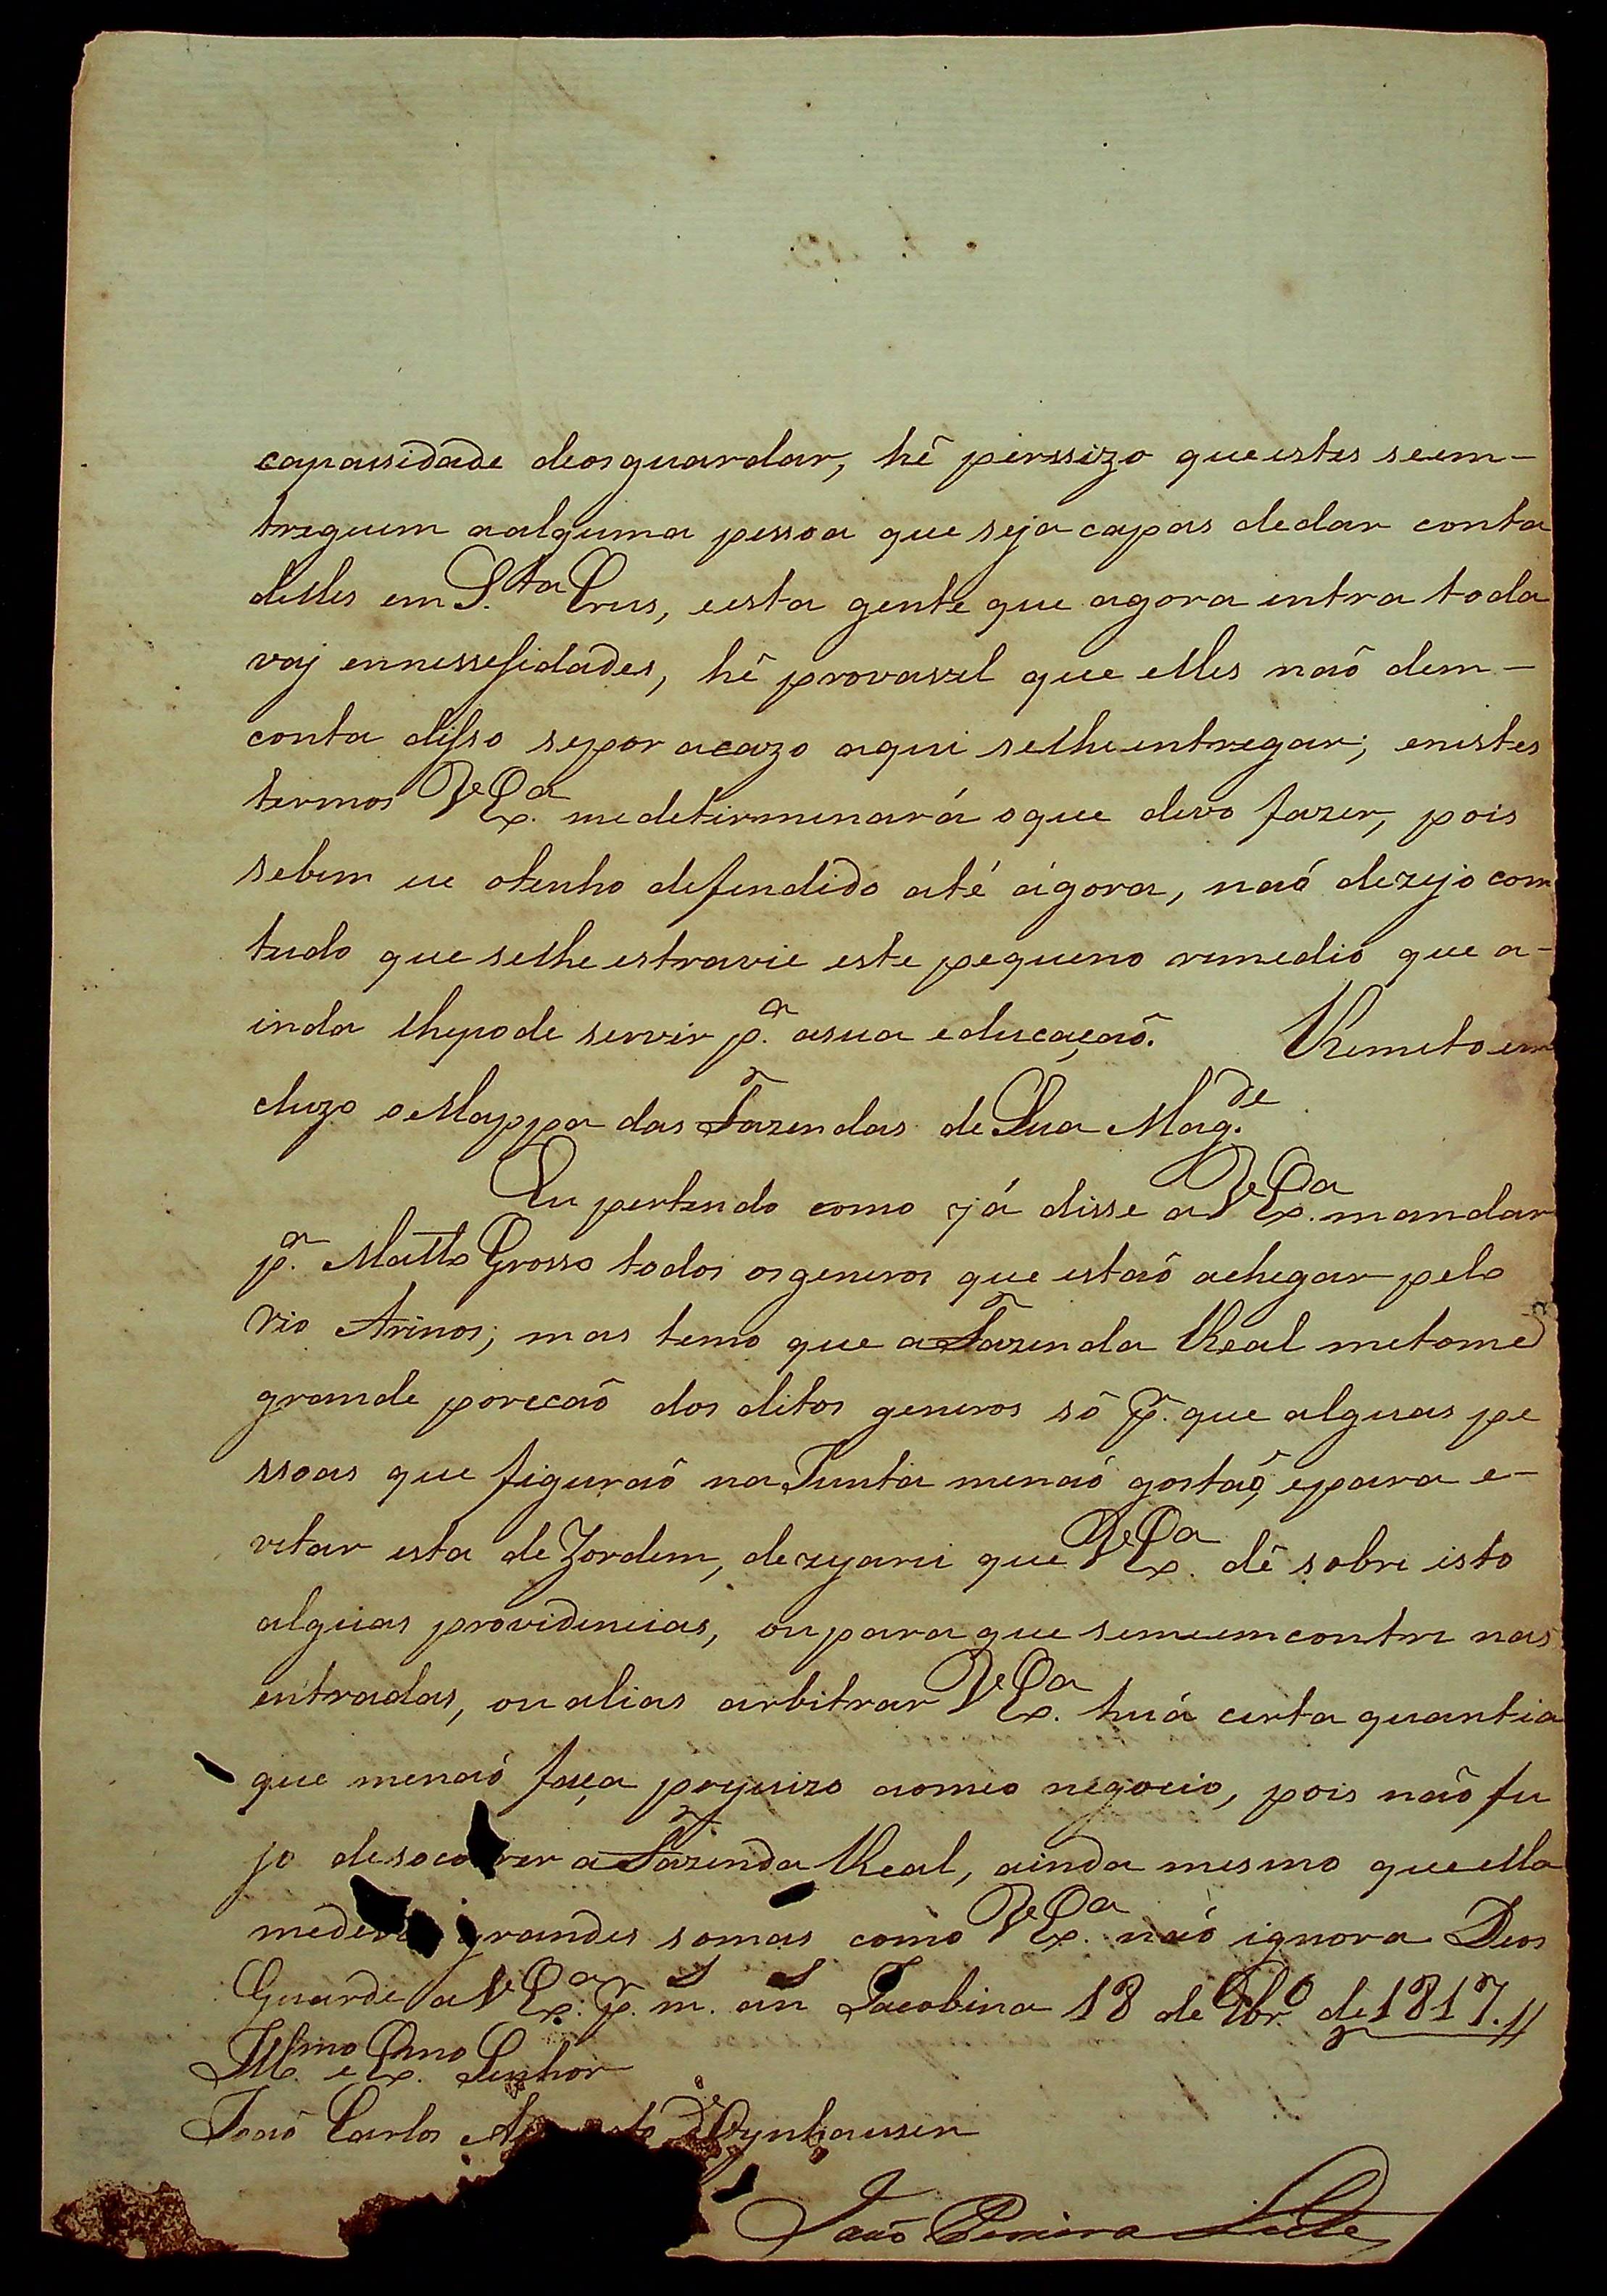 capassidade deosguardar, hé perssizo queestes seem-
treguem aalguma pessoa que seja capas dedar conta
delles em S.ta Crus, eesta gente que agora entra toda
vaj ennessesidades, hé provavel que elles naõ dem-
conta disso sepor acazo aqui selheentregar; enestes
termos VEx.a medetirmenará oque devo fazer, pois
sebem eu otenho defendido até ágora, naõ dezejo com
tudo que selheestravie este pequeno remedio que a-
inda lhepode servir p.a asua educaçaõ. Remeto em
cluzo oMappa das Fazendas de Sua Mag.de
Eu pertendo como já disse aVEx.a mandar
p.a Matto Grosso todos osgeneros que estaõ achegar pelo
rio Arinos; mas temo que aFazenda Real metome
grande porecaõ dos ditos generos só p.a que alguas pe
ssoas que figuraõ naJunta menaõ gostaõ, epara e-
vitar esta deZordem, dezejarei que VEx.a dê sobre isto
algúas providencias, oupara que semeemcontre nas
entradas, ou alias arbitrar VEx.a huá certa quantia
que menaõ faça perjuizo aomeo negocio, pois naõ fu
jo desocorrer aFazenda Real, ainda mesmo queella
medeva grandes somas como VEx.a naõ ignora Deos
Guarde aVEx.a p.r m.s an.s Jacobina 18 de 9br.o de1817.//
Ill.mo e Ex.mo Senhor
Joaõ Carlos Augusto D'Oeynhausen
Joaõ Pereira Leite